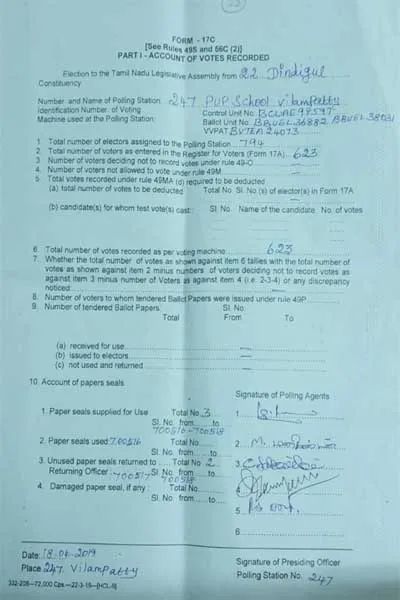 FORM - 17C
[See Rules 49S and 56C (2)]
PART I - ACCOUNT OF VOTES RECORDED
Election to the Tamil Nadu Legislative Assembly from 22 Dindigul
Constituency
Number and Name of Polling Station : 247 PUP. School Vilampatty
Identification Number. of Voting Control Unit No. BCUAE98597
Machine used at the Polling Station: Ballot Unit No. BBUEL36882 BBUEL38031
VVPAT BVTEA24073
1 Total number of electors assigned to the Polling Station 794
2. Total number of voters as entered in the Register for Voters (Form 17A) 623
3 Number of voters deciding not to record votes under rule 49-O
4. Number of voters not allowed to vote under rule 49M
5 Total votes recorded under rule 49MA (d) required to be deducted
(a) total number of votes to be deducted Total No Sl. No (s) of elector(s) in Form 17A
(b) candidate(s) for whom test vote(s) cast : Sl. No. Name of the candidate No. of votes
6. Total number of votes recorded as per voting machine 623
7. Whether the total number of votes as shown against item 6 tallies with the total number of
votes as shown against item 2 minus numbers of voters deciding not to record votes as
against item 3 minus number of Voters as against item 4 (i.e. 2-3-4) or any discrepancy
noticed
8. Number of voters to whom tendered Ballot Papers were issued under rule 49P
9. Number of tendered Ballot Papers: Sl. No.
Total From To
(a) received for use
(b) issued to electors
(c) not used and returned
10. Account of papers seals
Signature of Polling Agents
1. Paper seals supplied for Use Total No. 3 1
Sl. No. from to
700516-700518
2. Paper seals used 700516 Total No. 2. M.
Sl. No. from to
3. Unused paper seals returned to Total No. 2 3
Returning Officer Sl. No. from to
700517 700518
4. Damaged paper seal, if any : Total No. 4
Sl. No. from to 5
6
Date: 18.04.2019
Place 247. Vilampatty Signature of Presiding Officer
Polling Station No. 247
332-20B-72,000 Cps.-22-3-19-[HCL-9]